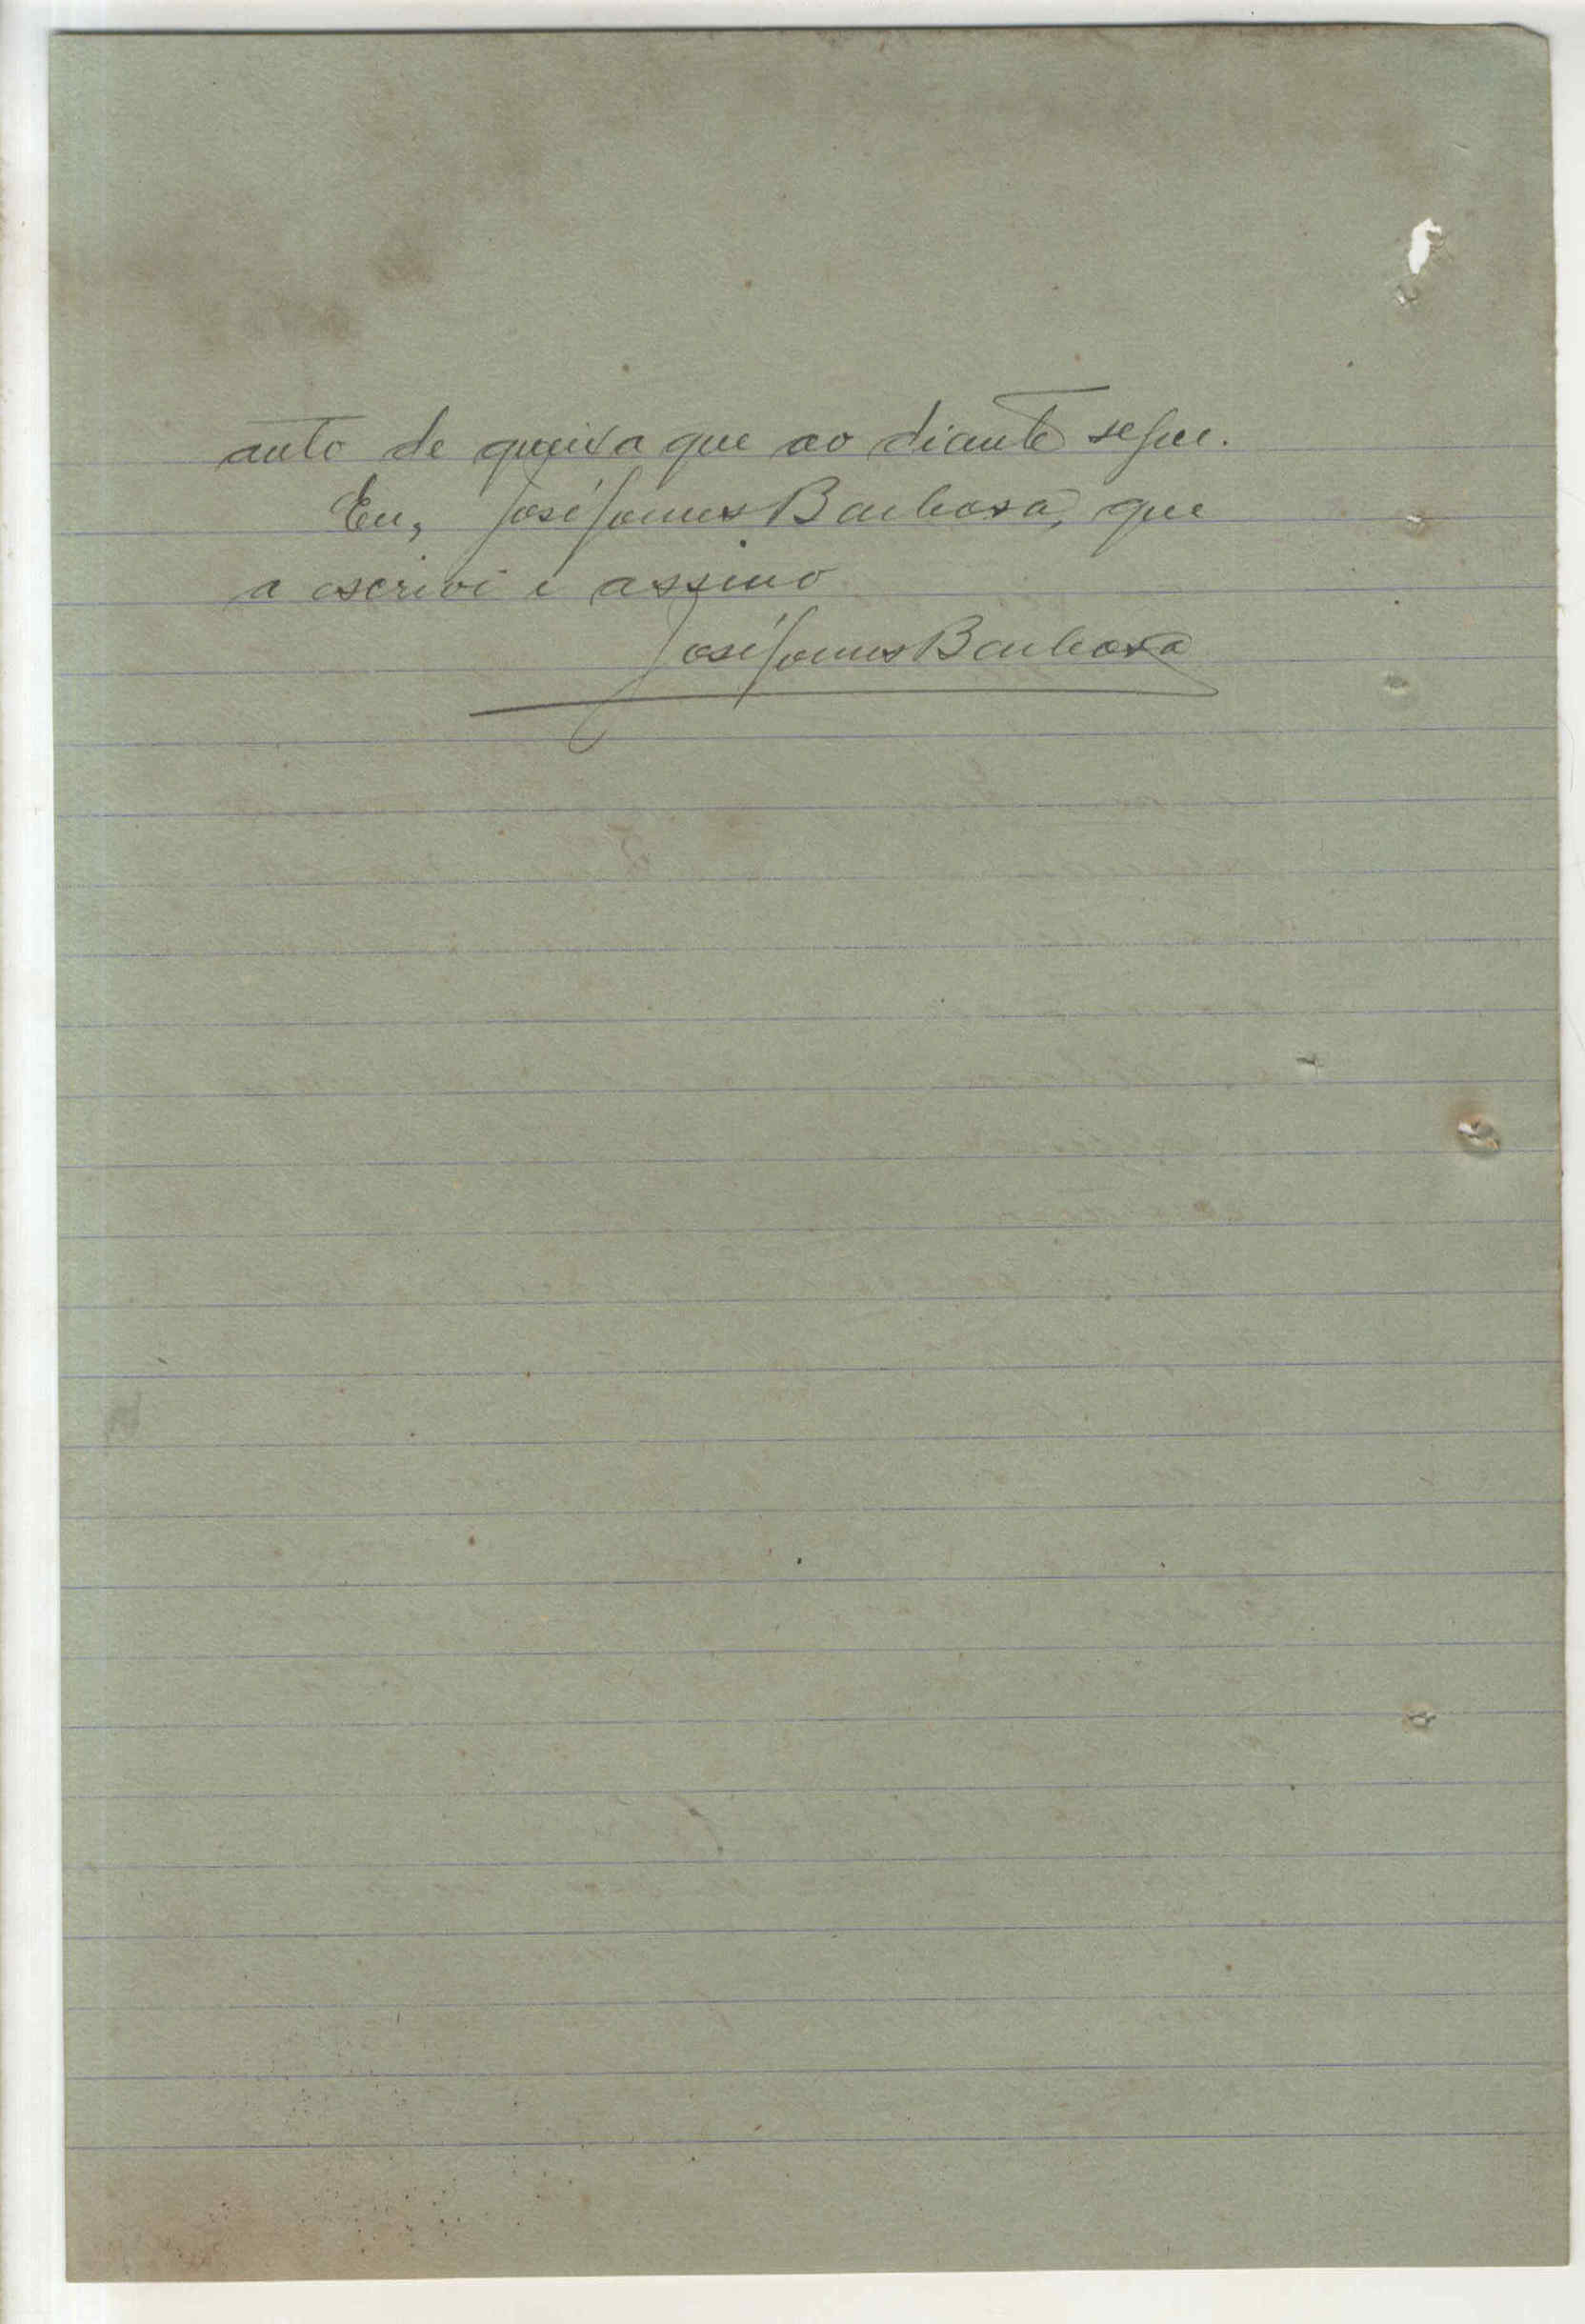 auto de queixa que ao diante segue.
Eu, José Gomes Barbosa, que
a escrivi e assino
José Gomes Barbosa